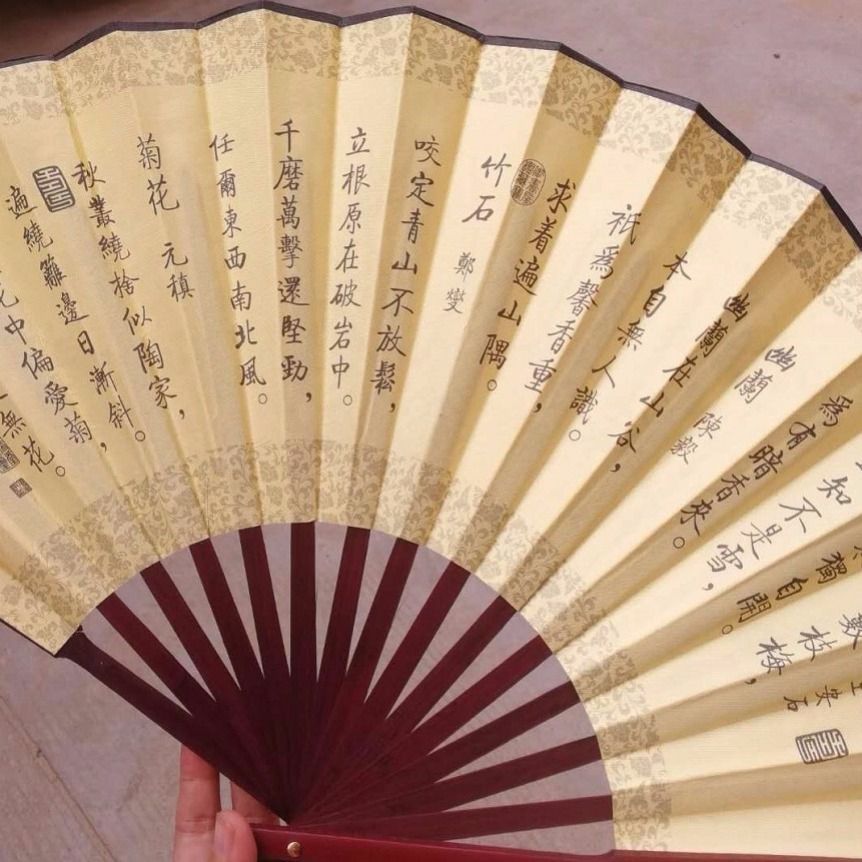 安石
枝梅，
獨自開。
知不是雪，
為有暗香來。
幽蘭 陳毅
幽蘭在山谷，
本自無人識。
祇為馨香重，
求着遍山隅。
竹石 鄭燮
咬定青山不放鬆，
立根原在破岩中。
千磨萬擊還堅勁，
任爾東西南北風。
菊花 元稹
秋叢繞捨似陶家，
遍繞籬邊日漸斜。
花中偏愛菊，
無花。